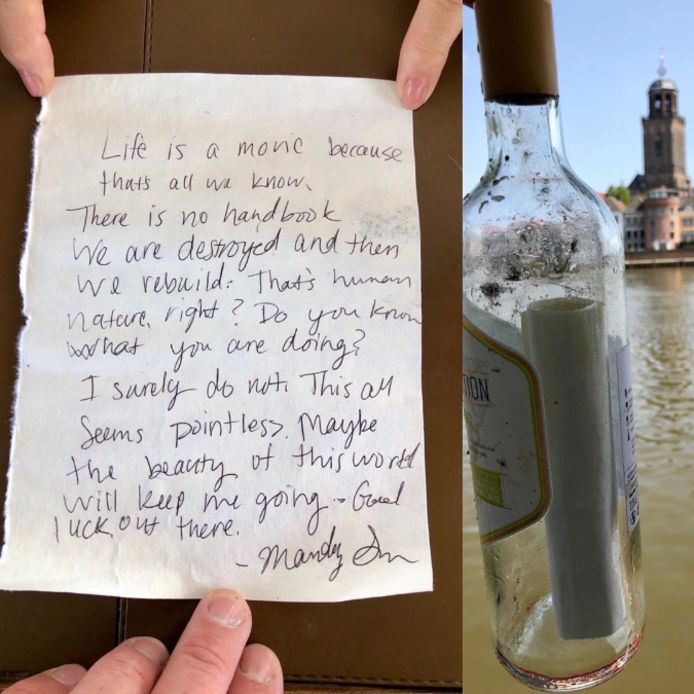 Life is a movie because
thats all we know.
There is no handbook
We are destroyed and then
we rebuild. That's human
nature, right? Do you know
what you are doing?
I surely do not. This all
seems pointless. Maybe
the beauty of this world
will keep me going - Good
luck out there.
- Mandy
TION